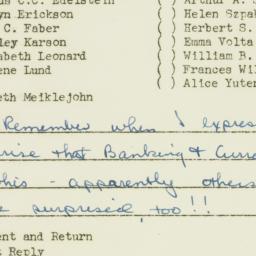 C.C. Edelstein ( ) Arthur A. S
yn Erickson ( ) Helen Szpa
C. Faber ( ) Herbert S.
ley Karson ( ) Emma Volta
abeth Leonard ( ) William B.
ene Lund ( ) Frances Wil
( ) Alice Yuten
eth Meiklejohn
Remember when I expres
rise that Banking & Curre
this - apparently others
e surprised, too!!
ent and Return
t Reply